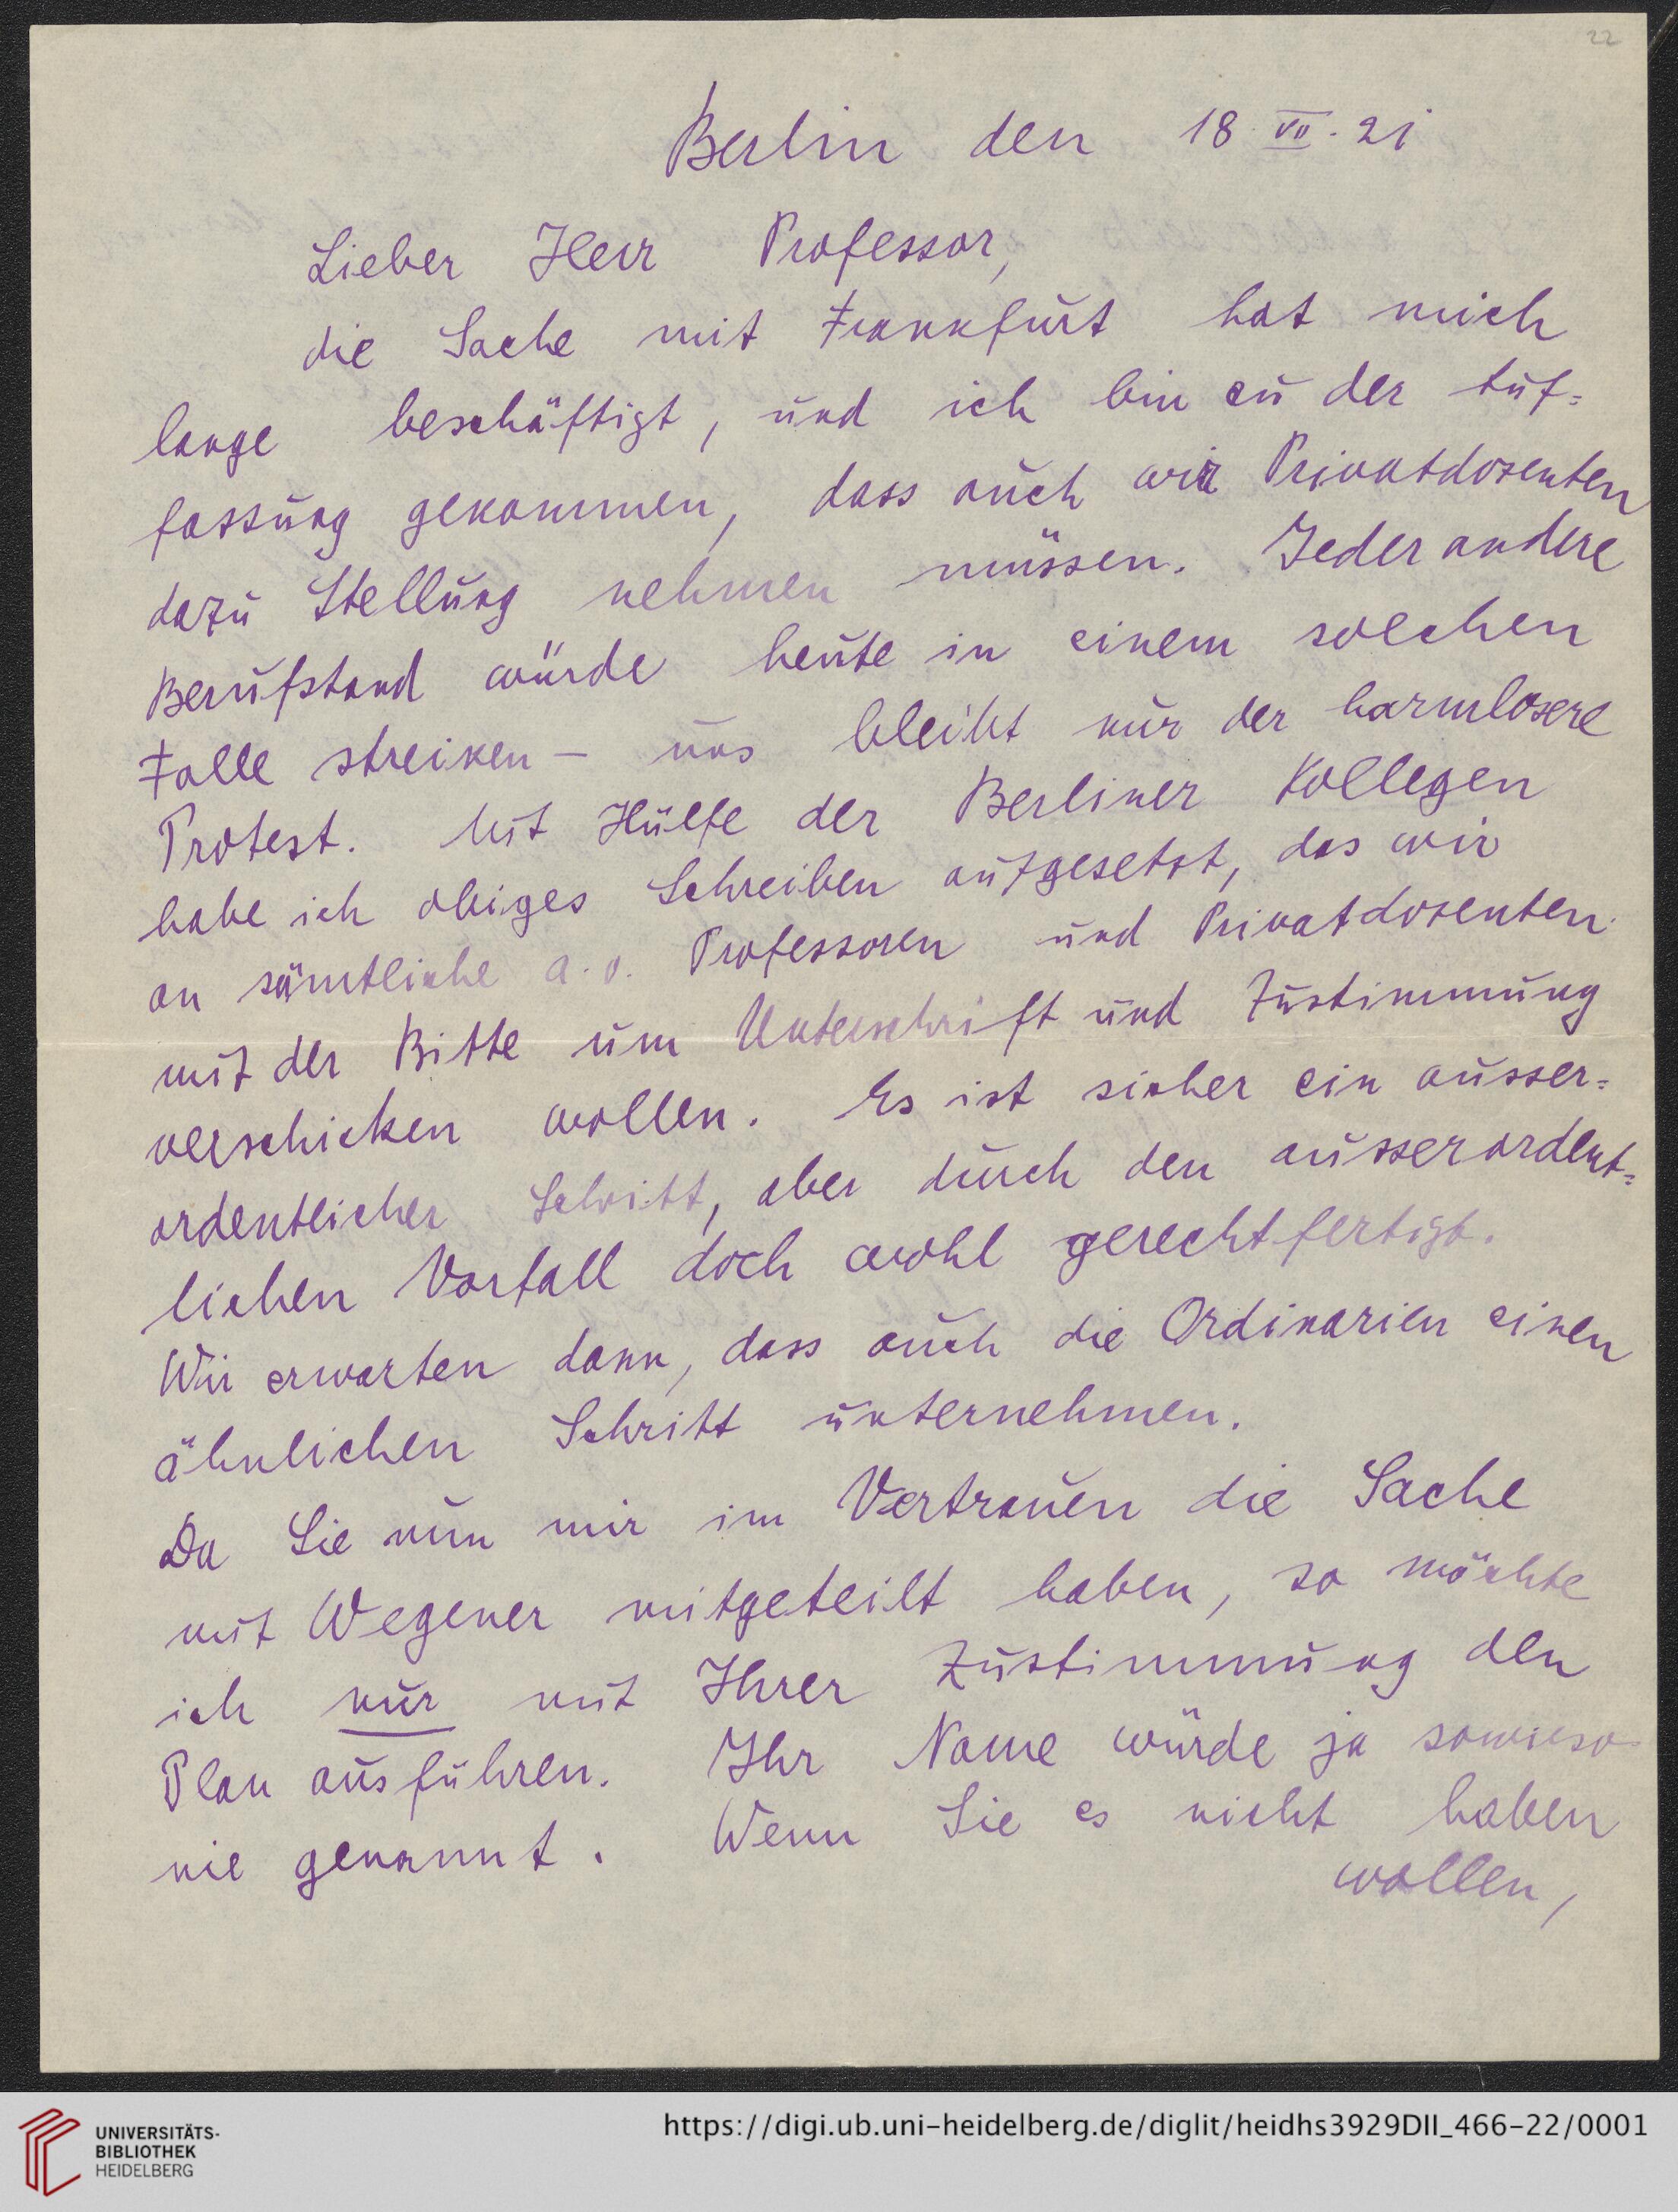 22
Berlin den 18. VII. 21
Lieber Herr Professor,
die Sache mit Frankfurt hat mich
lange beschäftigt, und ich bin zu der Auf=
fassung gekommen, dass auch wir Privatdozenten
dazu Stellung nehmen müssen. Jeder andere
Berufstand würde heute in einem solchen
Falle streiken – uns bleibt nur der harmlosere
Protest. Mit Hülfe der Berliner Kollegen
habe ich obiges Schreiben aufgesetzt, das wir
an sämtliche a.o. Professoren und Privatdozenten
mit der Bitte um Unterschrift und Zustimmung
verschicken wollen. Es ist sicher ein ausser=
ordentlicher Schritt, aber durch den ausserordent=
lichen Vorfall doch wohl gerechtfertigt.
Wir erwarten dann, dass auch die Ordinarien einen
ähnlichen Schritt unternehmen.
Da Sie nun mir im Vertrauen die Sache
mit Wegener mitgeteilt haben, so möchte
ich nur mit Ihrer Zustimmung den
Plan ausführen. Ihr Name würde ja sowieso
nie genannt. Wenn Sie es nicht haben
wollen,
UNIVERSITÄTS-
BIBLIOTHEK
HEIDELBERG
https://digi.ub.uni-heidelberg.de/diglit/heidhs3929DII_466-22/0001